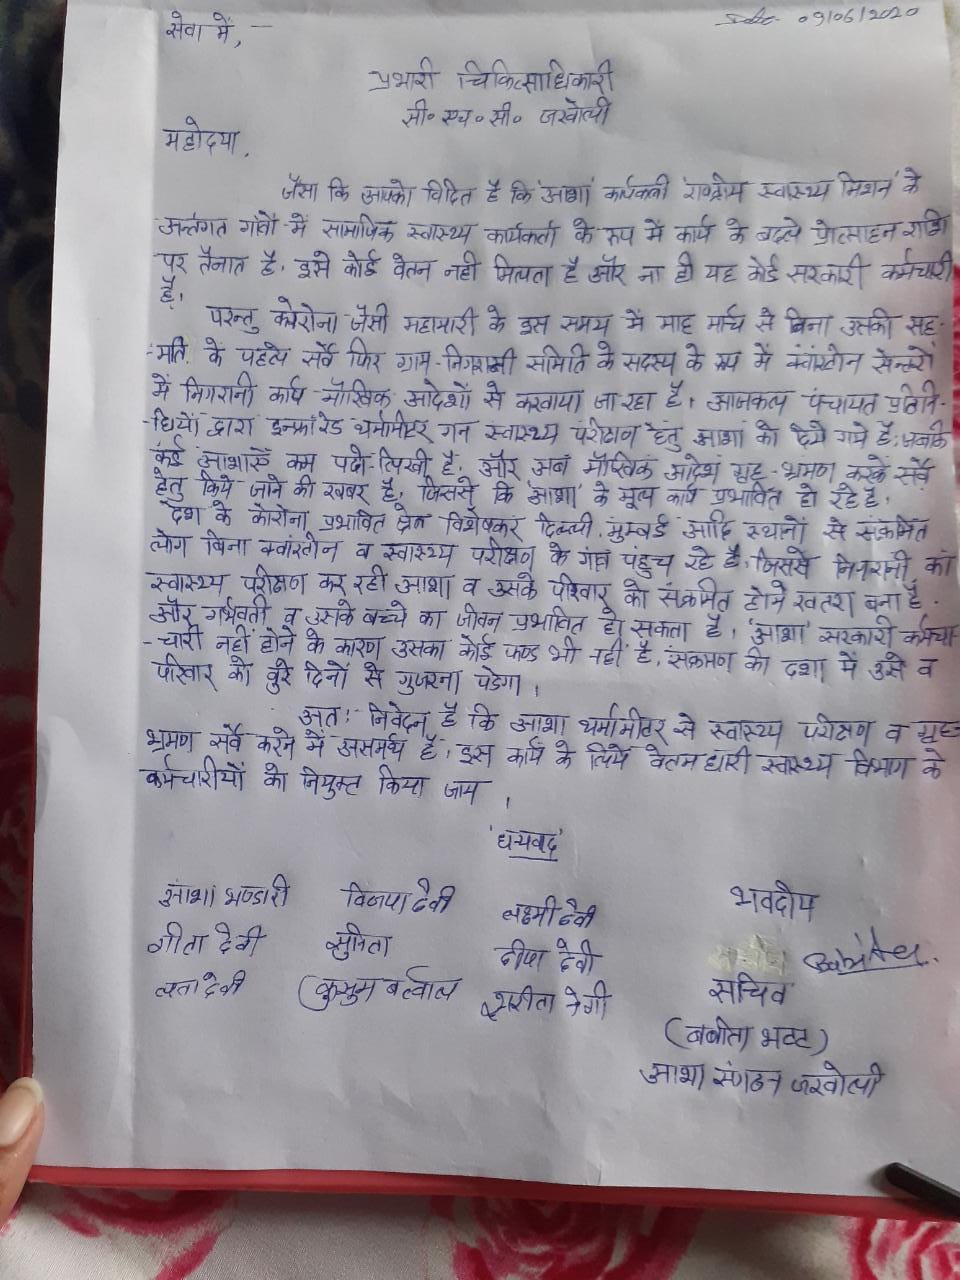 सेवा में,-
Date- 09/06/2020
प्रभारी चिकित्साधिकारी
सी० एच० सी० जखोली
महोदया,
जैसा कि आपको विदित है कि 'आशा' कार्यकर्ती 'राष्ट्रीय स्वास्थ्य मिशन' के
अर्न्तगत गांवों में सामाजिक स्वास्थ्य कार्यकर्ता के रूप में कार्य के बदले प्रोत्साहन राशि
पर तैनात है, इसे कोई वेतन नही मिलता है और ना ही यह कोई सरकारी कर्मचारी
है।
परन्तु कोरोना जैसी महामारी के इस समय में माह मार्च से बिना उसकी सह-
-मति के पहले सर्वे फिर ग्राम निगरानी समिति के सदस्य के रूप में क्वांरटीन सेन्टरों
में निगरानी कार्य मौखिक आदेशों से करवाया जा रहा है, आजकल पंचायत प्रतिनि-
-धियों द्वारा इन्फ्रारेड थर्मामीटर गन स्वास्थ्य परीक्षण हेतु आशा को दिये गये है, जबकि
कई आशाऐं कम पढी-लिखी है, और अब मौखिक आदेश गृह-भ्रमण करके सर्वे
हेतु किये जाने की खबर है, जिससे कि 'आशा' के मूल कार्य प्रभावित हो रहे है,
देश के कोरोना प्रभावित क्षेत्र विशेषकर दिल्ली, मुम्बई आदि स्थानों से संक्रमित
लोग बिना क्वांरटीन व स्वास्थ्य परीक्षण के गांव पंहुच रहे है, जिससे निगरानी का
स्वास्थ्य परीक्षण कर रही आशा व उसके परिवार को संक्रमित होने खतरा बना है,
और गर्भवती व उसके बच्चे का जीवन प्रभावित हो सकता है, 'आशा' सरकारी कर्मचा-
-चारी नहीं होने के कारण उसका कोई फण्ड भी नही है, संक्रमण की दशा में उसे व
परिवार को बुरे दिनों से गुजरना पडेगा।
अतः निवेदन है कि आशा थर्मामीटर से स्वास्थ्य परीक्षण व गृह
भ्रमण सर्वे करने में असमर्थ है, इस कार्य के लिये वेतनधारी स्वास्थ्य विभाग के
कर्मचारीयों को नियुक्त किया जाय।
'धन्यवाद'
आशा भण्डारी विजया देवी लक्ष्मी देवी भवदीय
गीता देवी सुनिता दीपा देवी Babita
लता देवी कुसुम बर्त्वाल सरीता नेगी सचिव
(बबीता भट्ट)
आशा संगठन जखोली